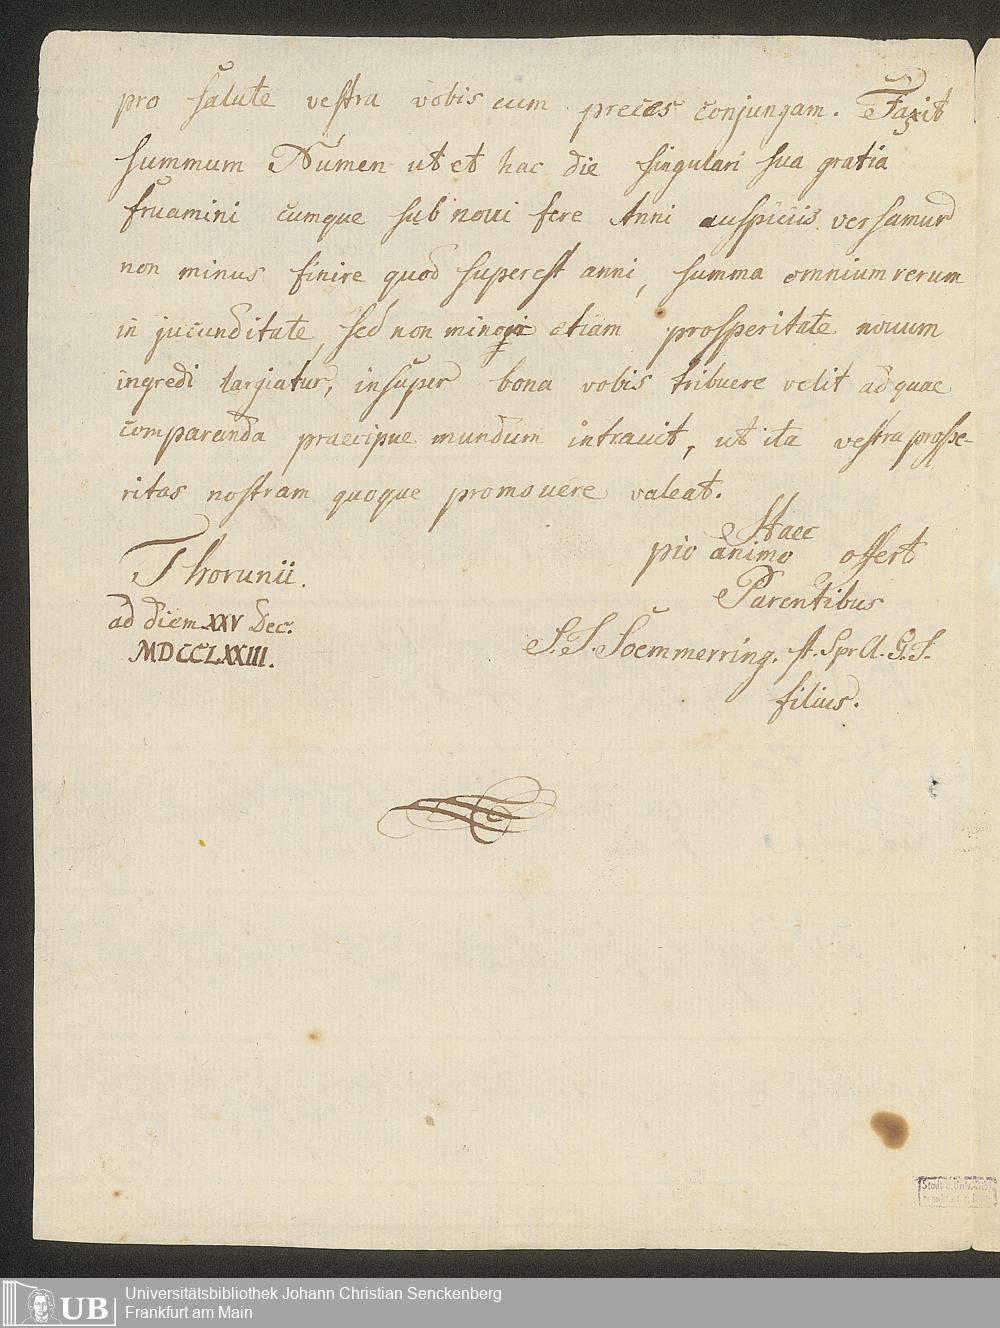 pro salute vestra vobis cum preces conjungam. Faxit
summum Numen ut et hac die singulari sua gratia
fruamini cumque sub noui fere Anni auspiciis versamur
non minus finire quod superest anni, summa omnium rerum
in jucunditate, sed non minori etiam prosperitate nouum
ingredi largiatur, insuper bona vobis tribuere velit ad quae
comparanda praecipue mundum intrauit, ut ita vestra prospe-
ritas nostram quoque promouere valeat.
Haec
pio animo offert
Parentibus
S. T. Soemmerring.
filius.
Thorunii.
ad diem XXV Dec.
MDCCLXXIII.
UB
Universitätsbibliothek Johann Christian Senckenberg
Frankfurt am Main